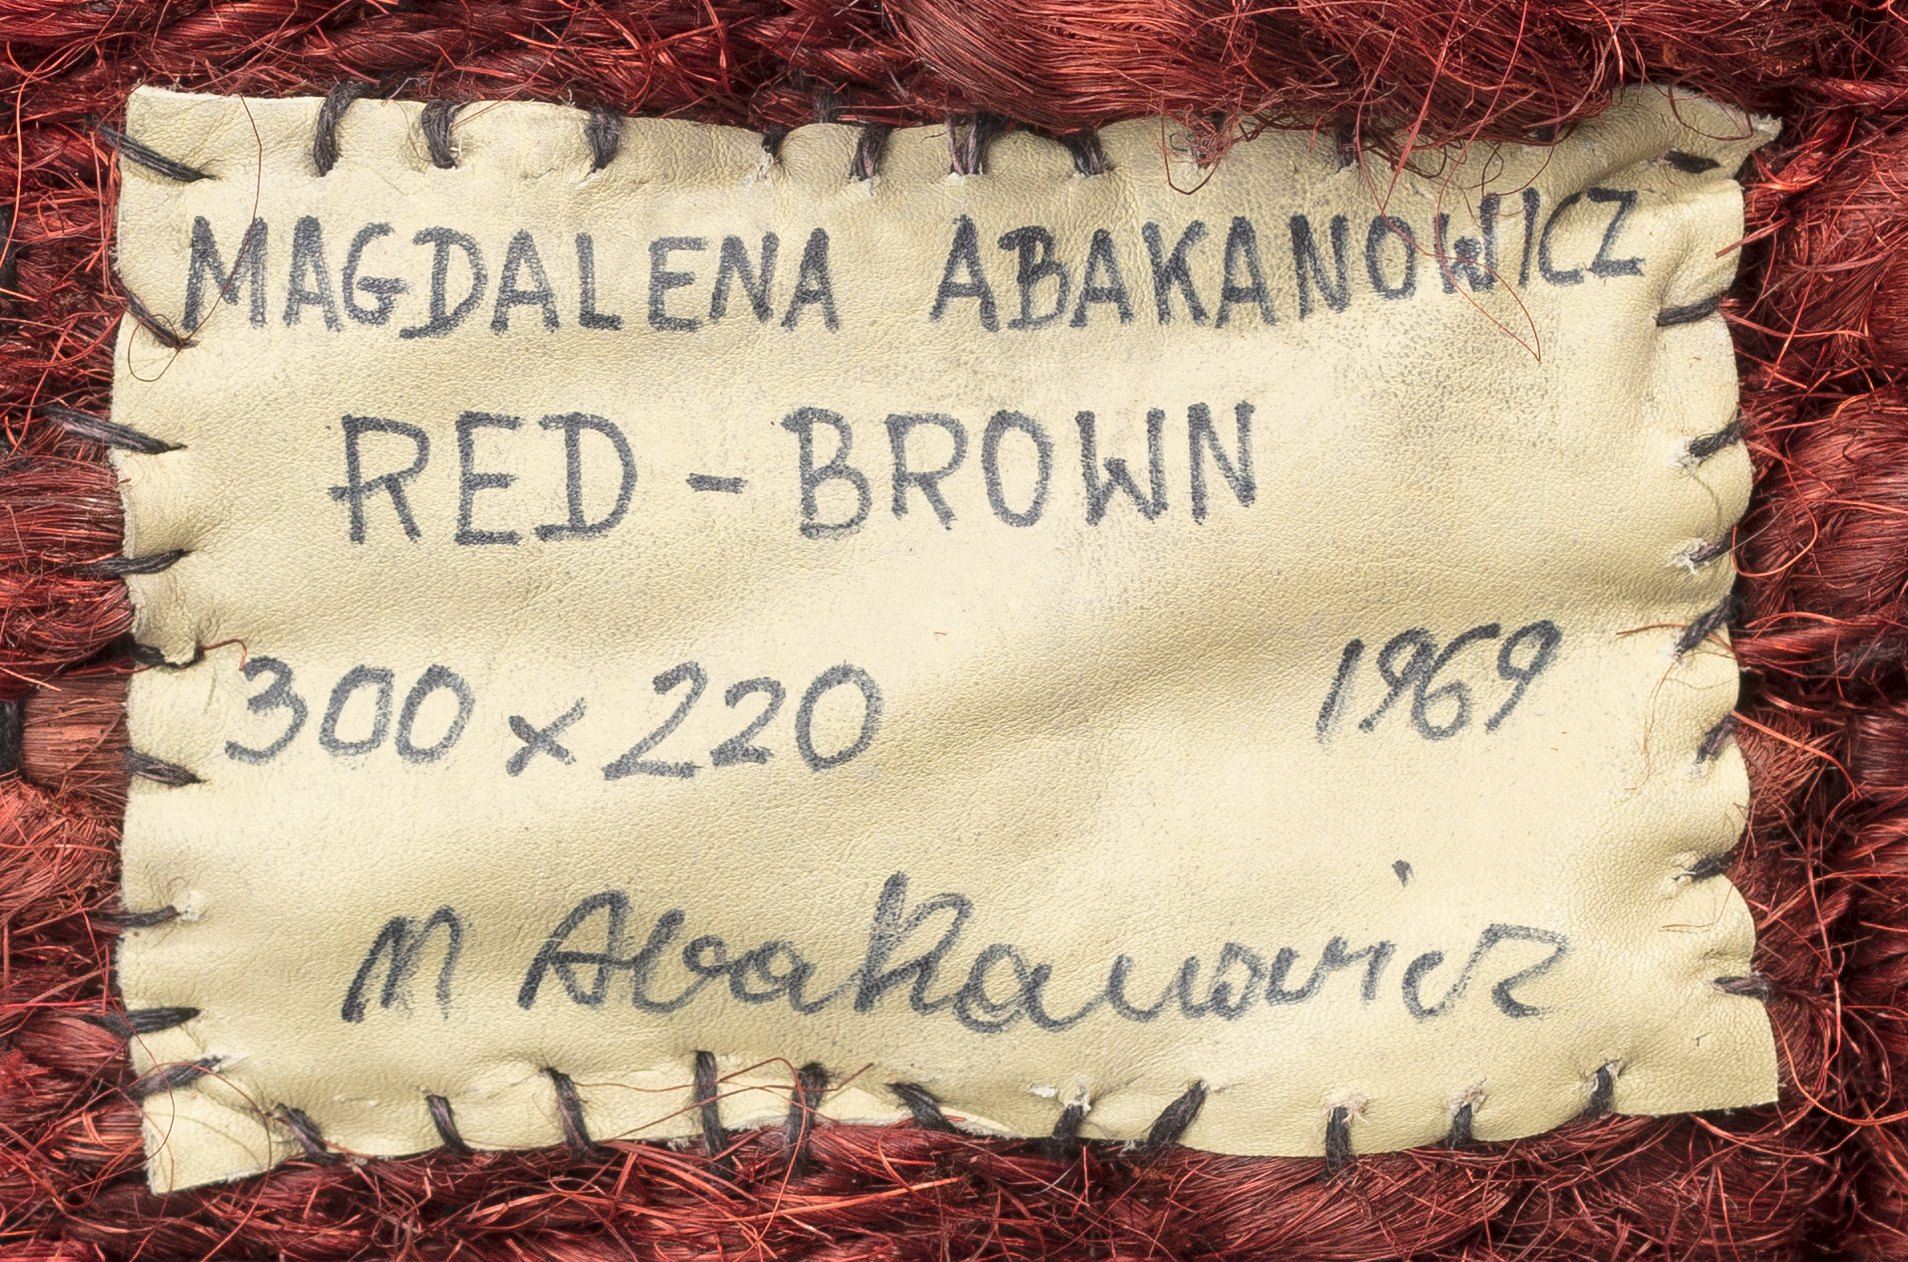 MAGDALENA ABAKANOWICZ
RED - BROWN
300 x 220 1969
M Abakanowicz